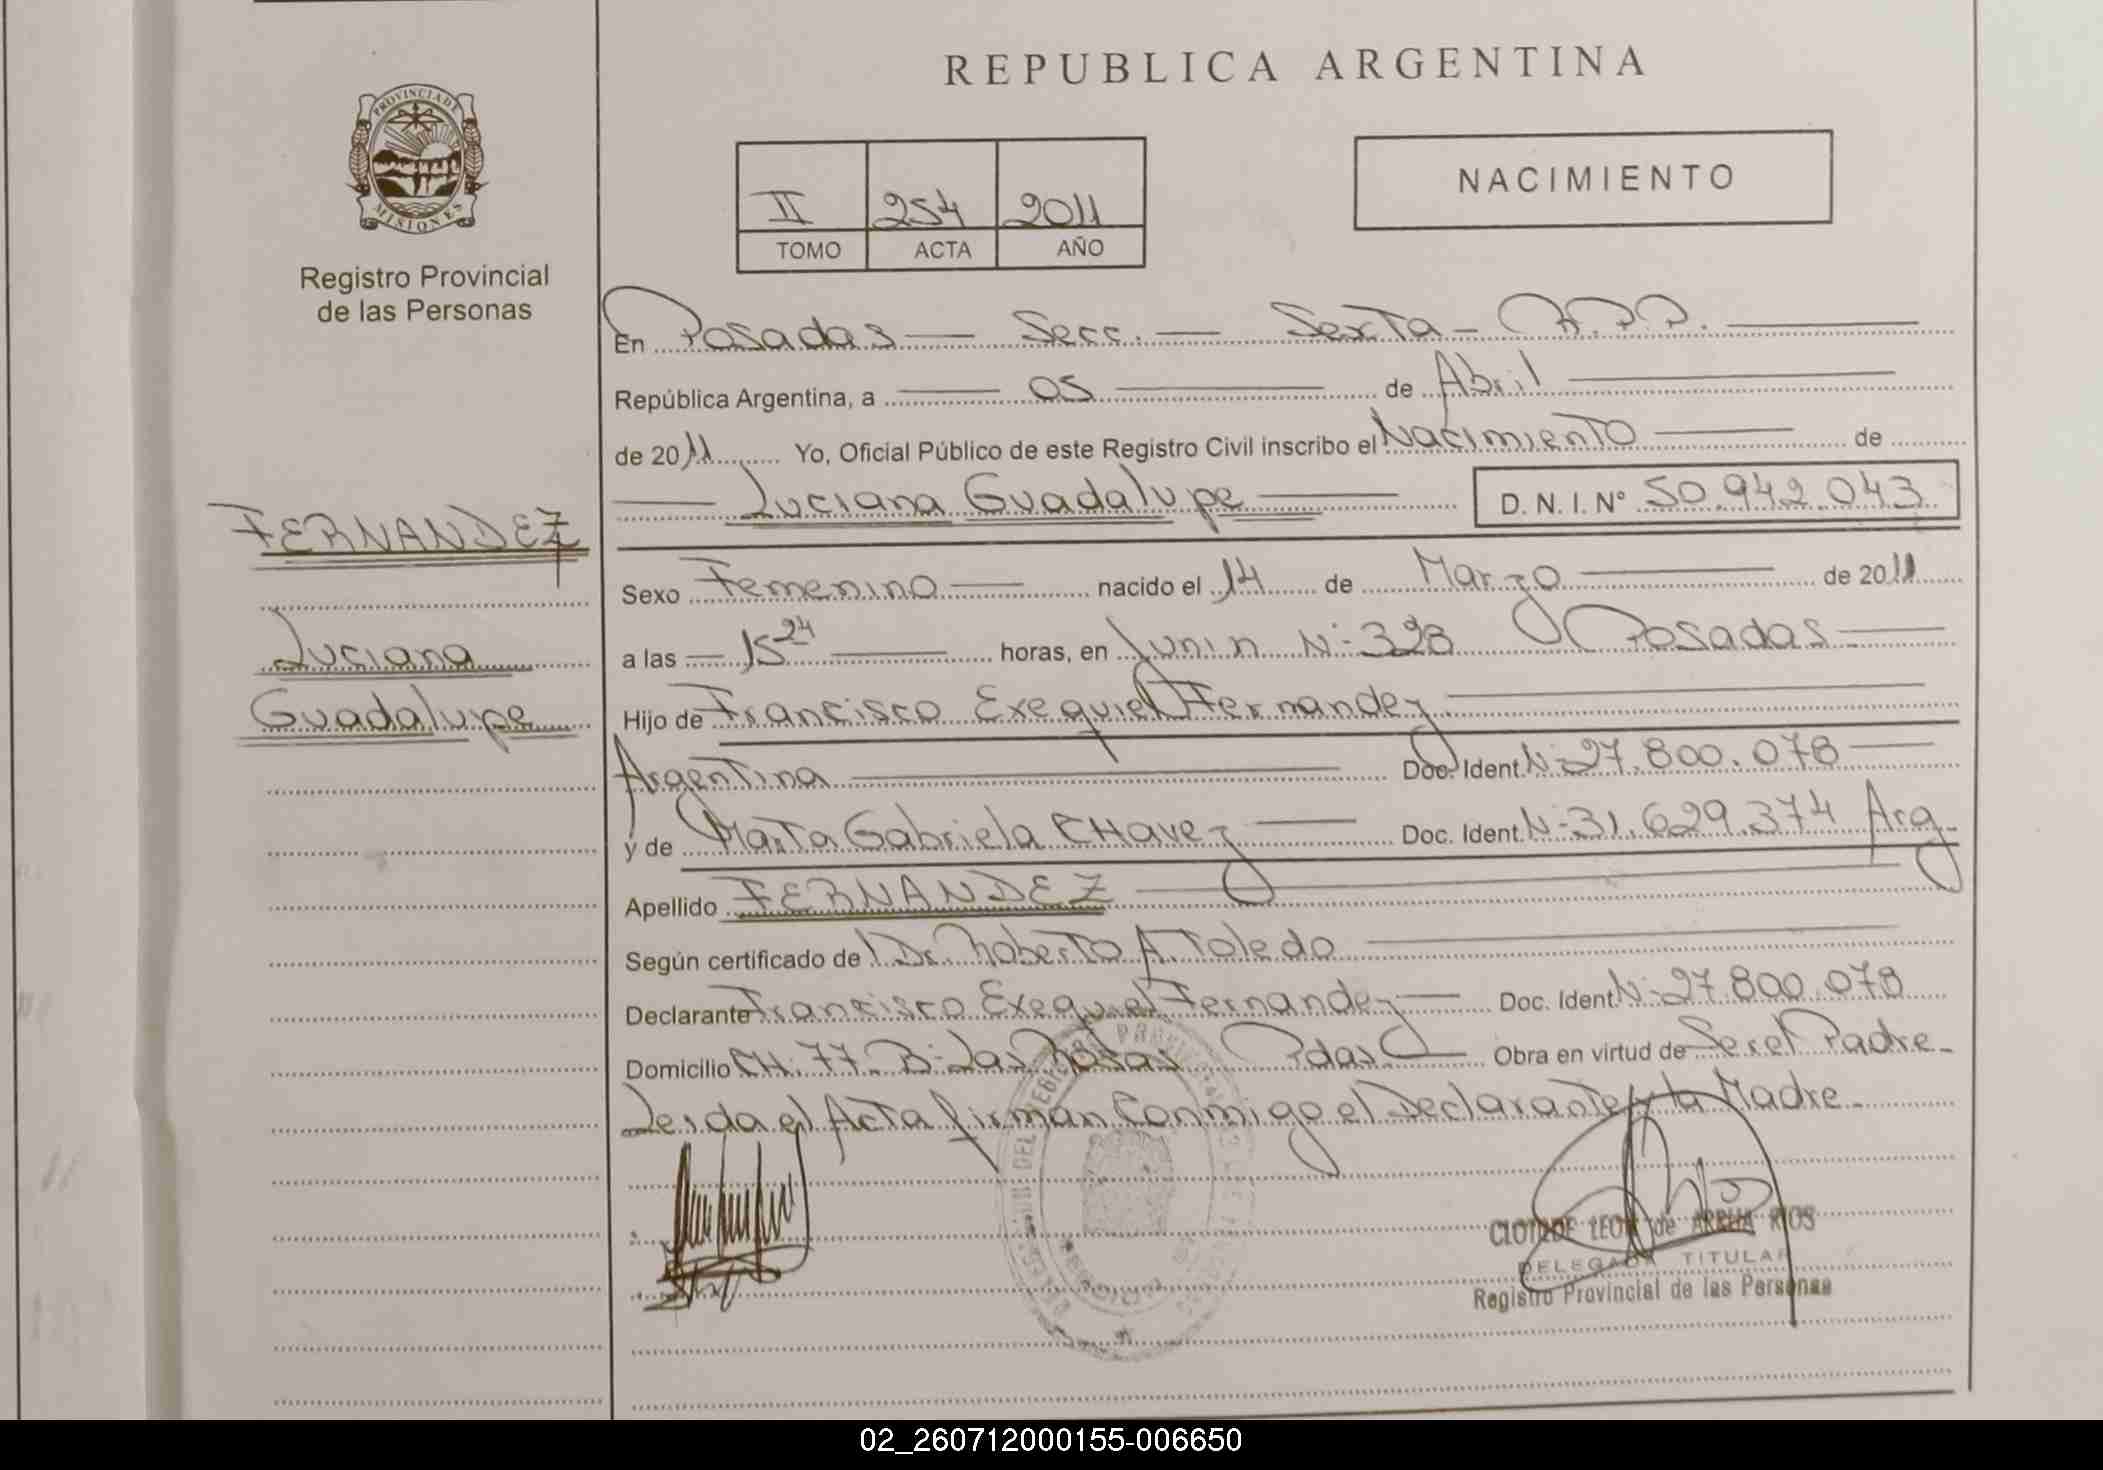 REPUBLICA ARGENTINA
PROVINCIA DE
MISIONES
Registro Provincial
de las Personas
NACIMIENTO
II 254 2011
TOMO ACTA AÑO
En Posadas — Secc. — Sexta — R.P.P. —
República Argentina, a — 05 — de Abril —
de 2011 Yo, Oficial Público de este Registro Civil inscribo el Nacimiento — de
— Luciana Guadalupe — D. N. I. Nº 50.942.043
FERNANDEZ
Luciana
Guadalupe
Sexo Femenino — nacido el 14 de Marzo — de 2011
a las — 15 24 — horas, en Junin Nº 328 Posadas —
Hijo de Francisco Exequiel Fernandez —
Argentina — Doc. Ident. Nº 27.800.078 —
y de Marta Gabriela CHavez — Doc. Ident. Nº 31.629.374 Arg.
Apellido FERNANDEZ —
Según certificado de Dr. Roberto A. Toledo —
Declarante Francisco Exequiel Fernandez — Doc. Ident. Nº 27.800.078
Domicilio CH. 77 Bº Las Rosas Pdas — Obra en virtud de Ser el Padre -
Leida el Acta firman Conmigo el Declarante y la Madre -
CLOTILDE LEON de ARRUA RIOS
DELEGADA TITULAR
Registro Provincial de las Personas
02_260712000155-006650